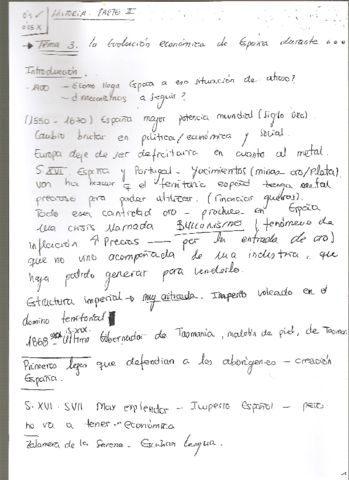 HISTORIA. PARTE II
→ Tema 3. la Evolución económica de España durante ...
Introducción.
- ¿Cómo llega España a esa situación de atraso?
- ¿ mecanismos a seguir?
(1550 - 1670) España mayor potencia mundial (siglo oro)
Cambio brutal en política/económica y social.
Europa deja de ser deficitaria en cuanto al metal.
S XVI. España y Portugal - Yacimientos (minas-oro/Plata)
van ha hacer q el territorio español tenga metal
precioso para poder utilizar. (financiar guerras).
Toda esa cantidad oro - produce en España
una crisis llamada BULLONISMO (fenómeno de
inflación ↑ Precios — por la entrada de oro)
que no vino acompañada de una industria, que
haya podido generar para venderlo.
Estructura Imperial → muy criticada. Imperio volcado en el
dominio territorial
s. XIX.
1868 - último Gobernador de Tasmania, maletín de piel, de Tasman
Primeras leyes que defendían a los aborígenes - creación
España.
S. XVI - SVII Mas explendor - Imperio Español - pero
no va a tener económica
Zalamera de la Serena - Escriben Lengua.
1